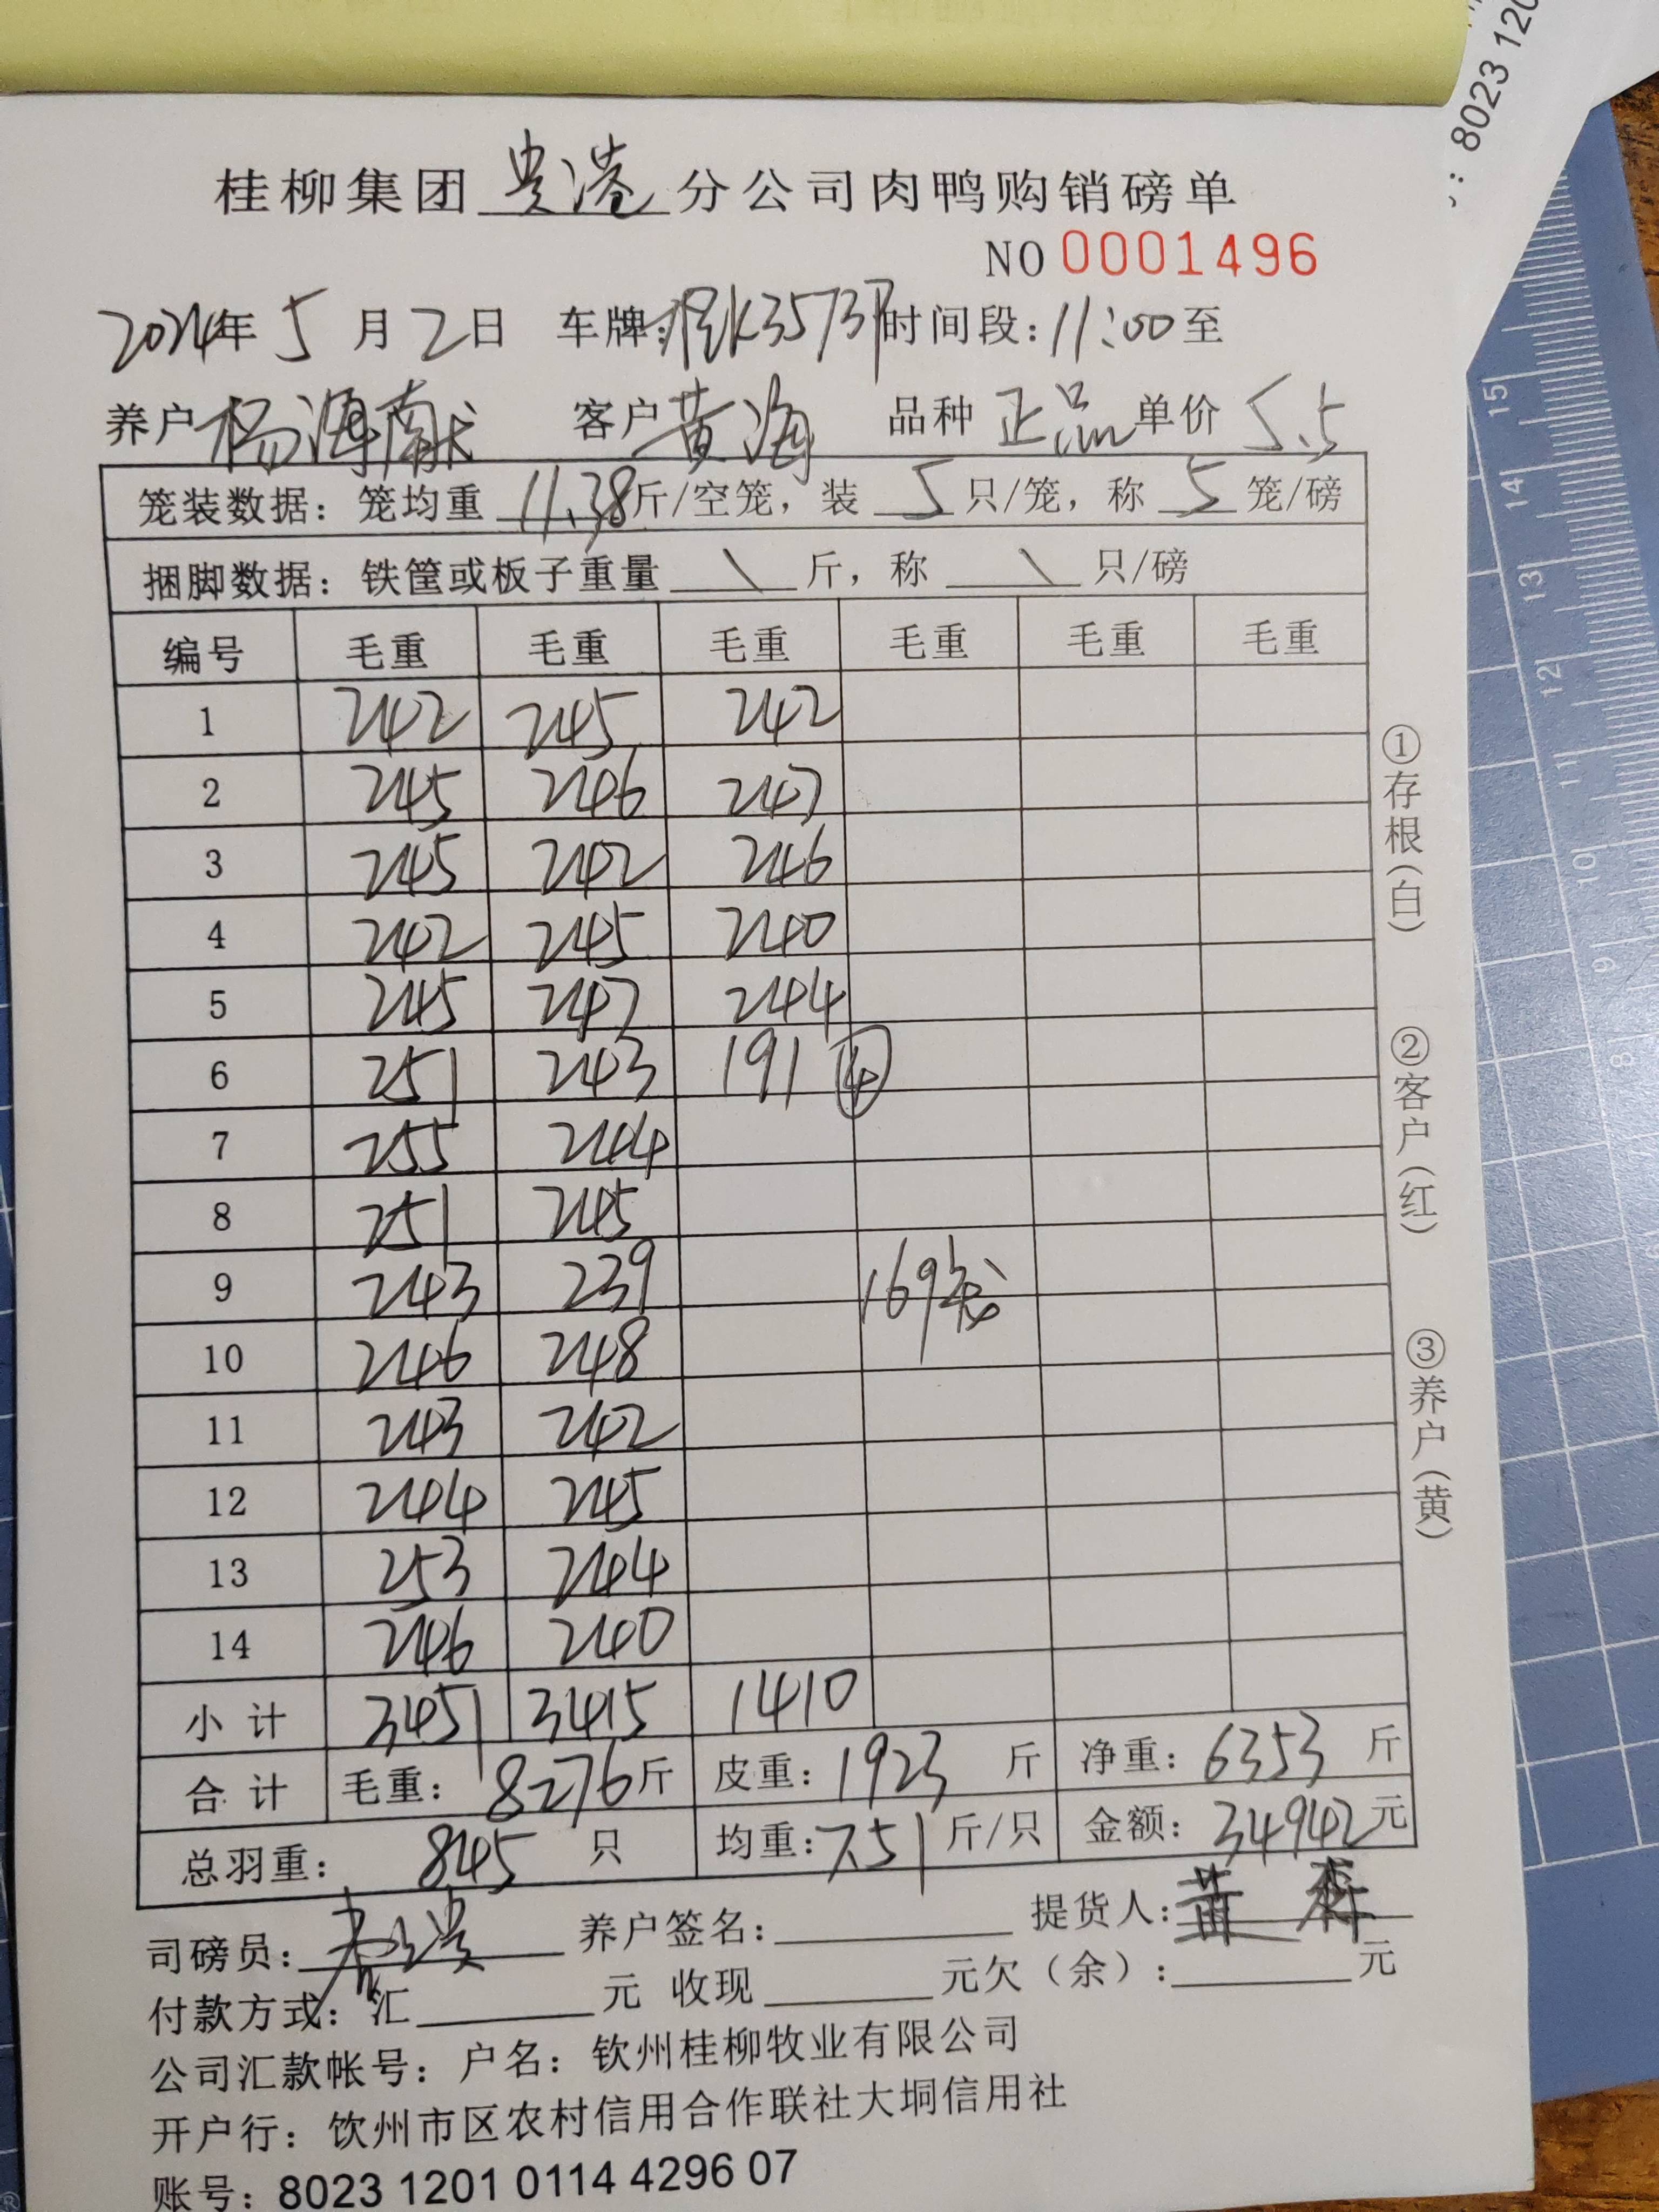 : 8023 120
桂柳集团 贵港 分公司肉鸭购销磅单
NO 0001496
2024年 5 月 2 日 车牌: 时间段: 11:00 至
养户 杨海献 客户 黄海 品种 正品 单价 5.5
笼装数据: 笼均重 11.38 斤/空笼, 装 5 只/笼, 称 5 笼/磅
捆脚数据: 铁筐或板子重量 \ 斤, 称 \ 只/磅
编号 毛重 毛重 毛重 毛重 毛重 毛重
1 242 245 242
2 245 246 247
3 245 242 246
4 242 245 240
5 245 247 244
6 251 243 191 ④
7 255 244
8 251 245
9 243 239 169
10 246 248
11 243 242
12 244 245
13 253 244
14 246 240
小计 3451 3415 1410
合计 毛重: 8276 斤 皮重: 1923 斤 净重: 6353 斤
总羽重: 845 只 均重: 7.51 斤/只 金额: 34942 元
司磅员: 养户签名: 提货人: 黄森
付款方式: 汇 元 收现 元欠(余): 元
公司汇款帐号: 户名: 钦州桂柳牧业有限公司
开户行: 钦州市区农村信用合作联社大垌信用社
账号: 8023 1201 0114 4296 07
①存根(白)
②客户(红)
③养户(黄)
15
14
13
12
11
10
9
8